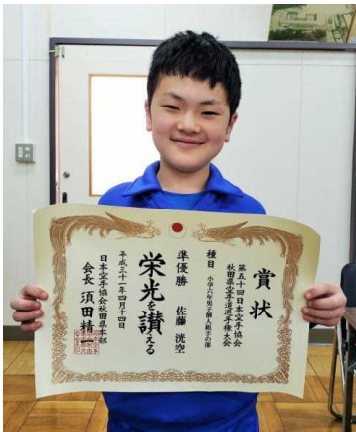 賞状
第五十回日本空手協会
秋田県空手道選手権大会
種目 小学六年男子個人組手の部
準優勝 佐藤 洸空
栄光を讃える
平成三十一年四月十四日
日本空手協会秋田県本部
会長 須田精一